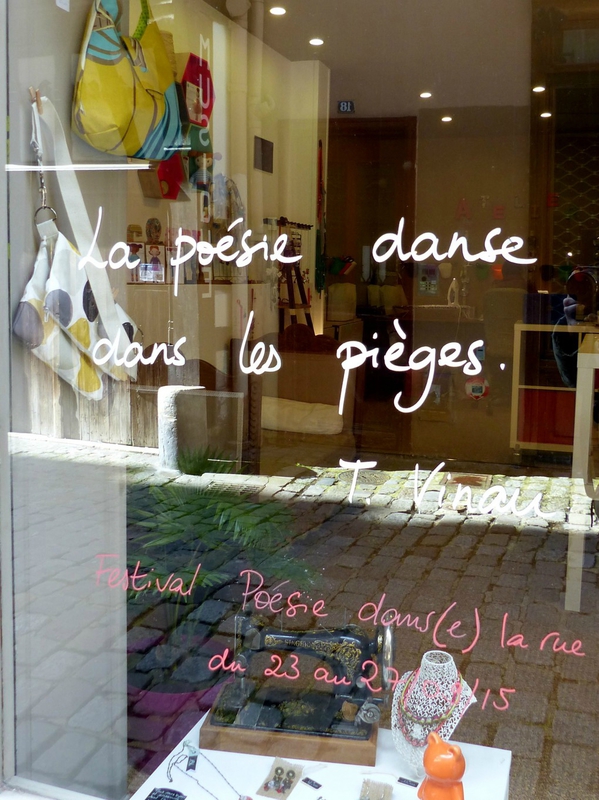 La poésie danse
dans les pièges.
T. Vinau
Festival Poésie dans(e) la rue
du 23 au 27 /15
SINGER
18
MUS